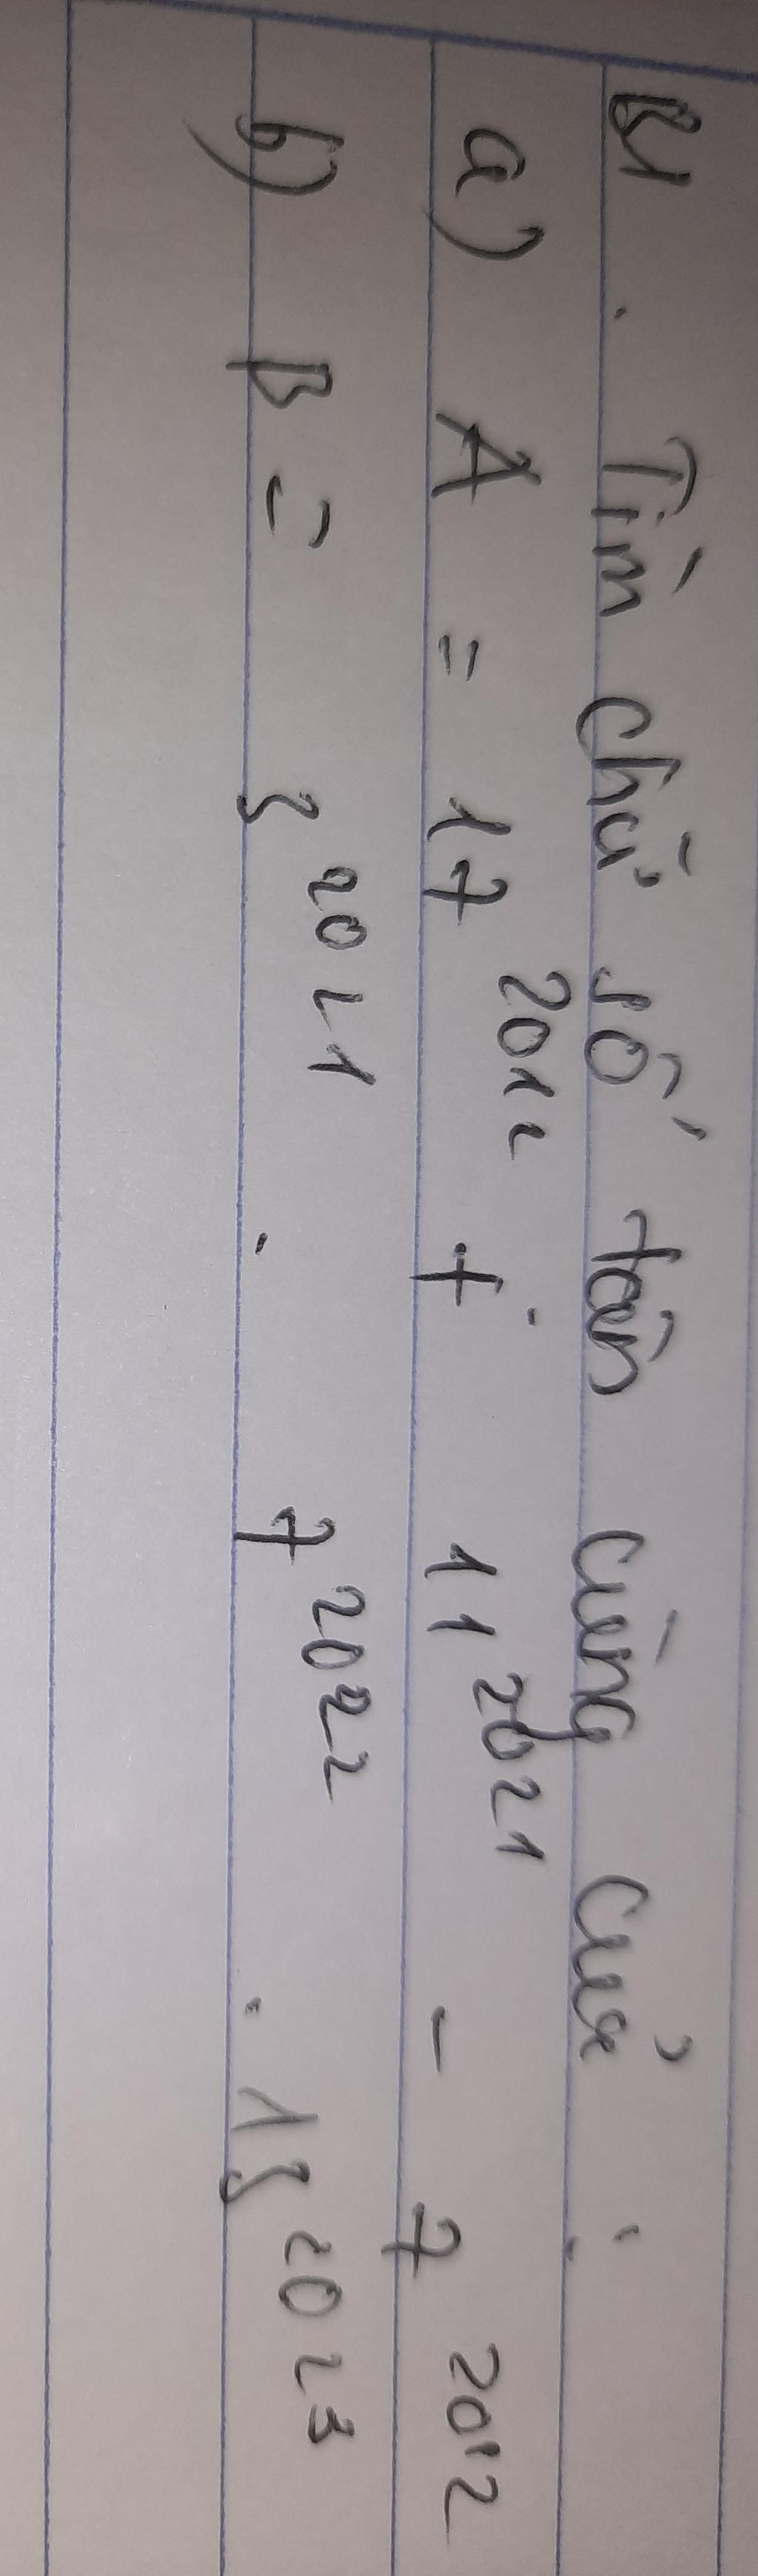 B4. Tìm chữ số tận cùng của :
a) A = 17^2012 + 11^2021 - 7^2012
b) B = 3^2021 . 7^2022 . 13^2023